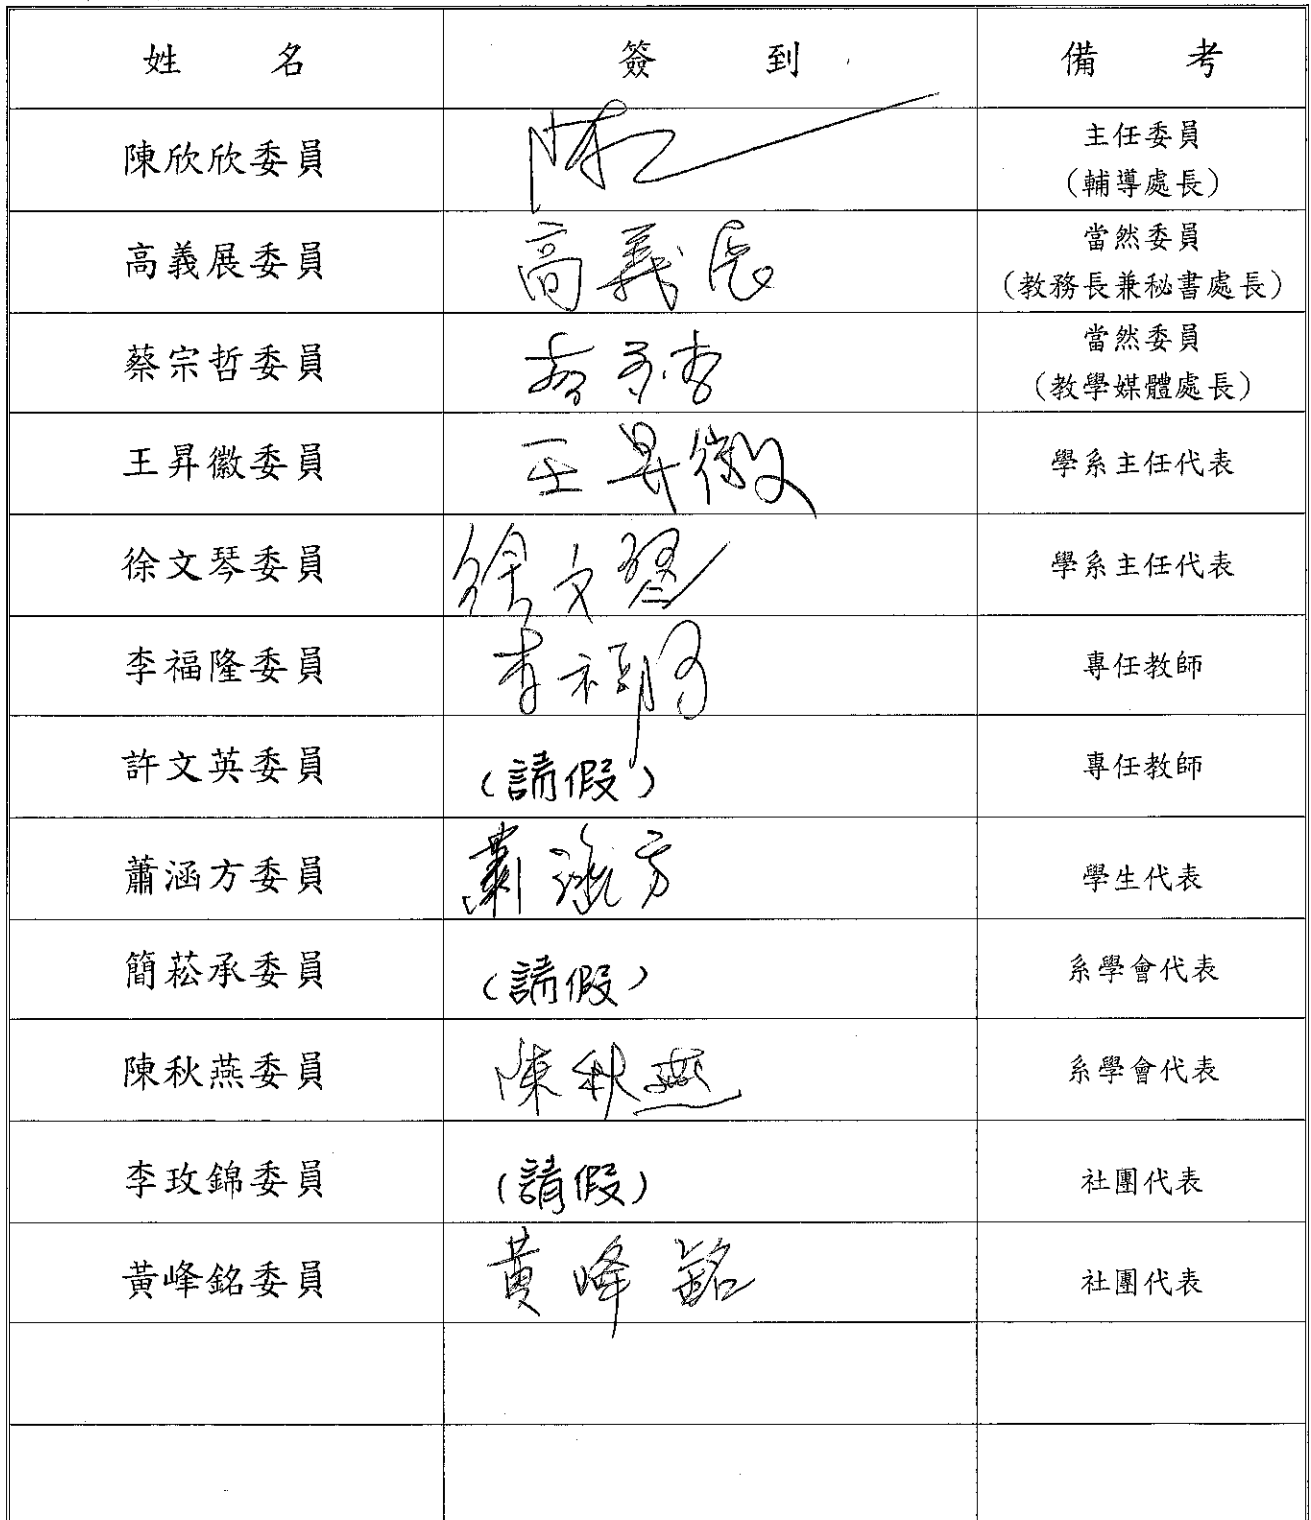 姓名 簽到 備考
陳欣欣委員 陳 主任委員
(輔導處長)
高義展委員 高義展 當然委員
(教務長兼秘書處長)
蔡宗哲委員 蔡宗哲 當然委員
(教學媒體處長)
王昇徽委員 王昇徽 學系主任代表
徐文琴委員 徐文琴 學系主任代表
李福隆委員 李福隆 專任教師
許文英委員 (請假) 專任教師
蕭涵方委員 蕭涵方 學生代表
簡菘承委員 (請假) 系學會代表
陳秋燕委員 陳秋燕 系學會代表
李玫錦委員 (請假) 社團代表
黃峰銘委員 黃峰銘 社團代表